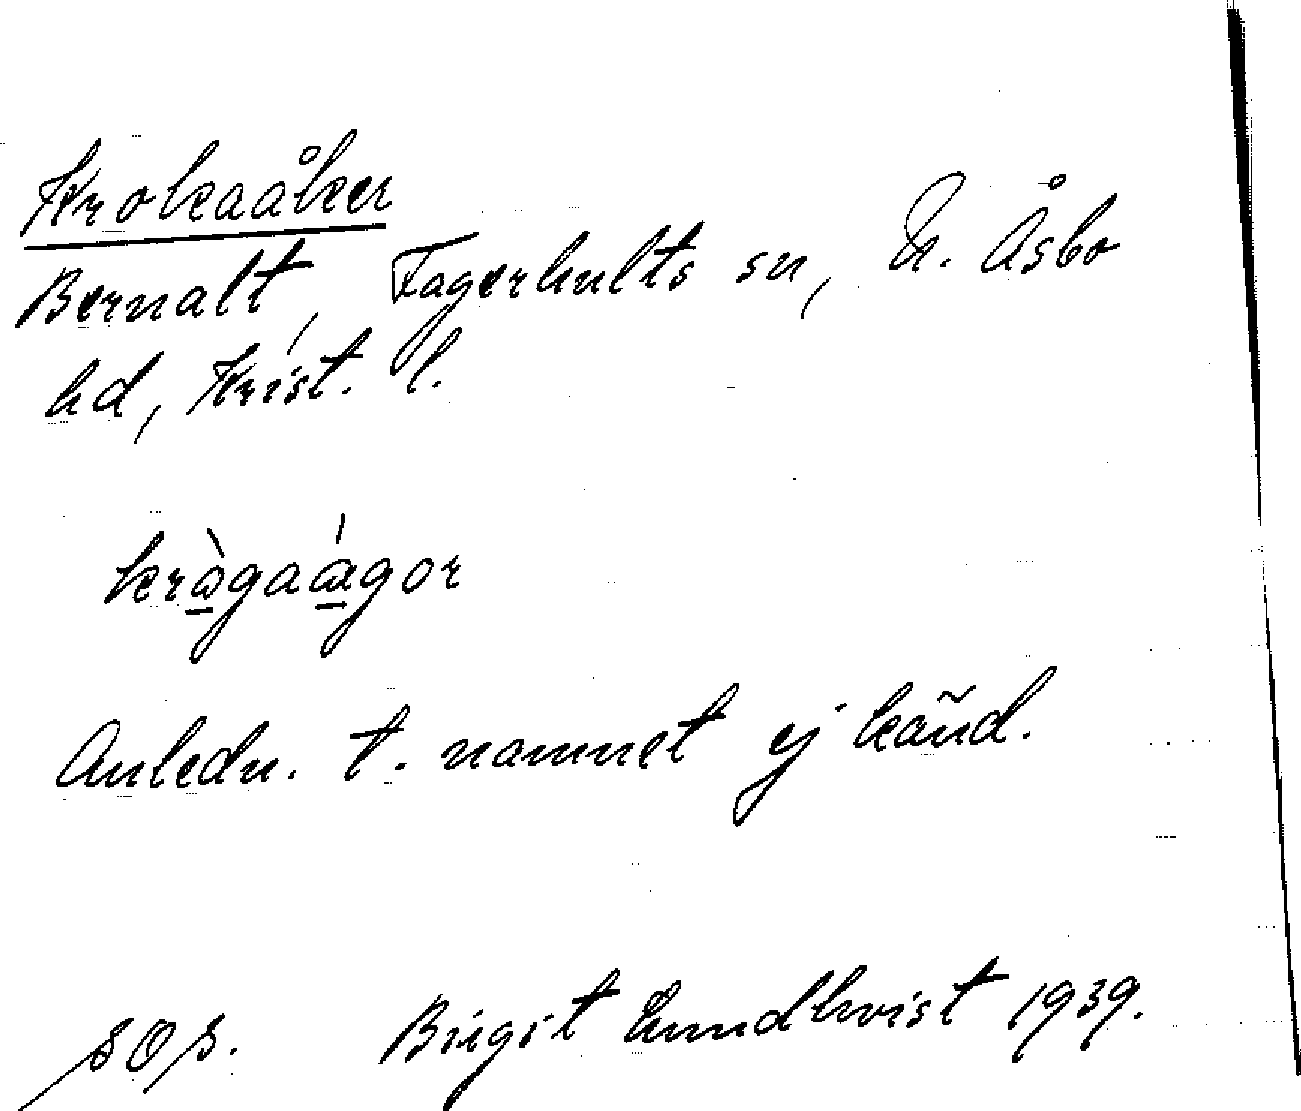 Krokaåker
Bernalt, Fagerhults sn, N. Åsbo
hd, Krist. l.
krògaágor
Anledn. t. namnet ej känd.
sOs. Birgit Lundkvist 1939.